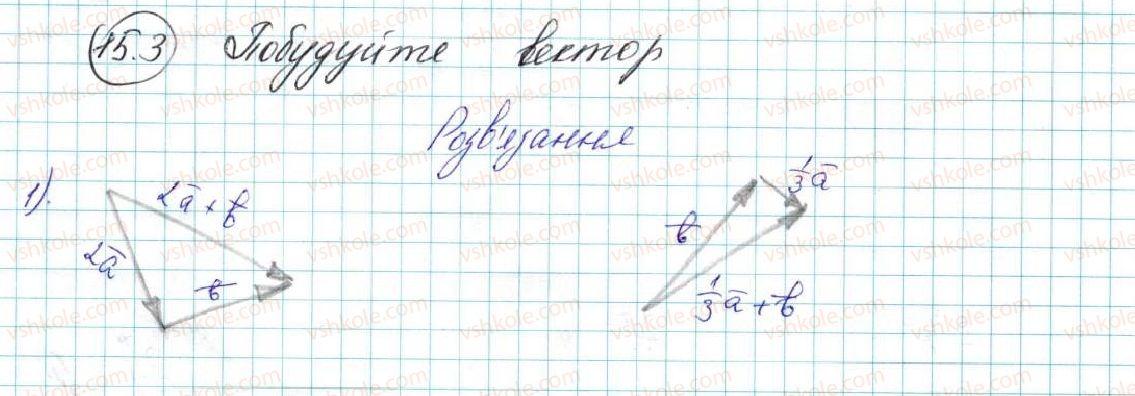 15.3 Побудуйте вектор
Розв'язання
1).
2a̅ + b̅
2a̅
b̅
b̅
1/3 a̅
1/3 a̅ + b̅
vshkole.com